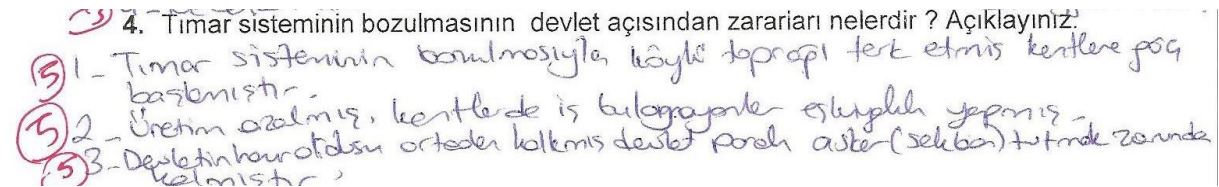 4. Tımar sisteminin bozulmasının devlet açısından zararları nelerdir ? Açıklayınız.
5 1- Tımar sisteminin bozulmasıyla köylü toprağı terk etmiş kentlere göç
başlamıştır.
5 2- Üretim azalmış, kentlerde iş bulamayanlar eşkıyalık yapmış.
5 3- Devletin hazır ordusu ortadan kalkmış devlet paralı asker (sekban) tutmak zorunda
kalmıştır.